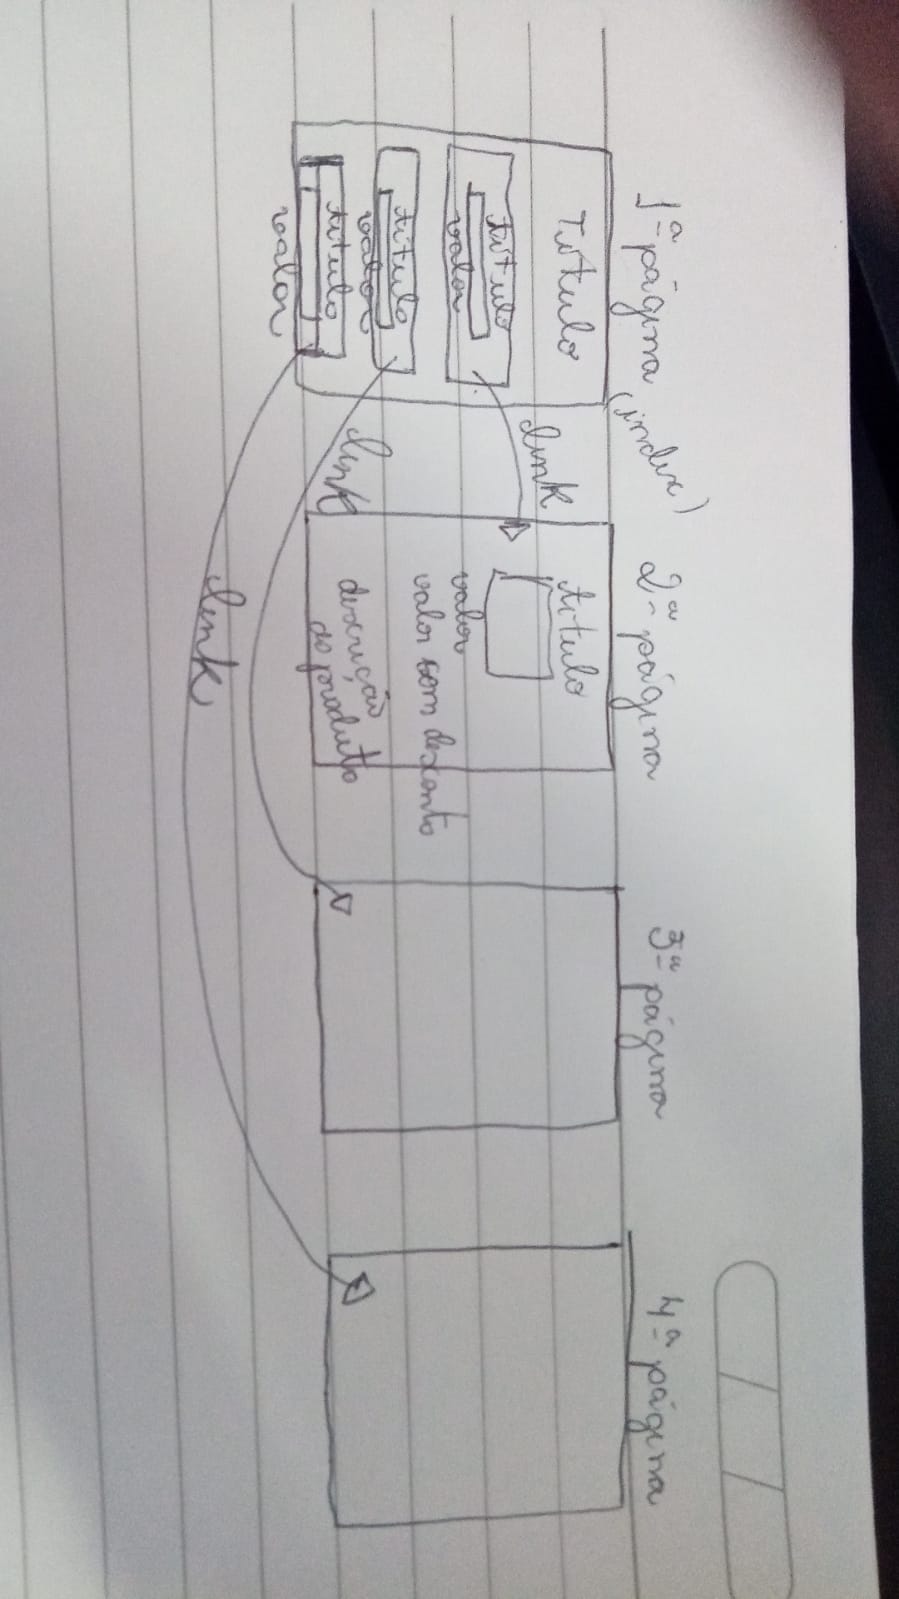 1ª página
(index)
Título
título
valor
título
valor
título
valor
link
link
link
2ª página
título
valor
valor com desconto
descrição
do produto
3ª página
4ª página